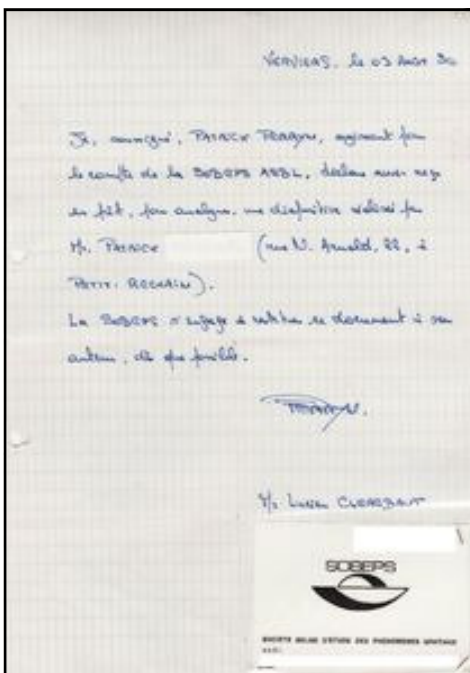 VERVIERS, le 03 Août 90
Je, soussigné, PATRICK FERRYN, agissant pour
le compte de la SOBEPS ASBL, déclare avoir reçu
en prêt, pour analyse, une diapositive réalisée par
Mr. PATRICK (rue N. Arnold, 22, à
PETIT-RECHAIN).
La SOBEPS s'engage à restituer ce document à son
auteur, dès que possible.
Lucien CLEREBAUT
SOBEPS
SOCIETE BELGE D'ETUDE DES PHENOMENES SPATIAUX